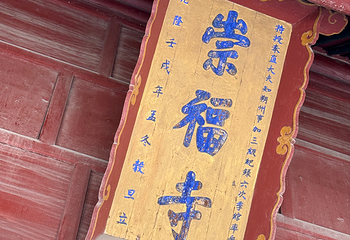 特授奉直大夫知朔州事加三級紀錄六次李
崇福寺
隆壬戌年孟冬穀旦立